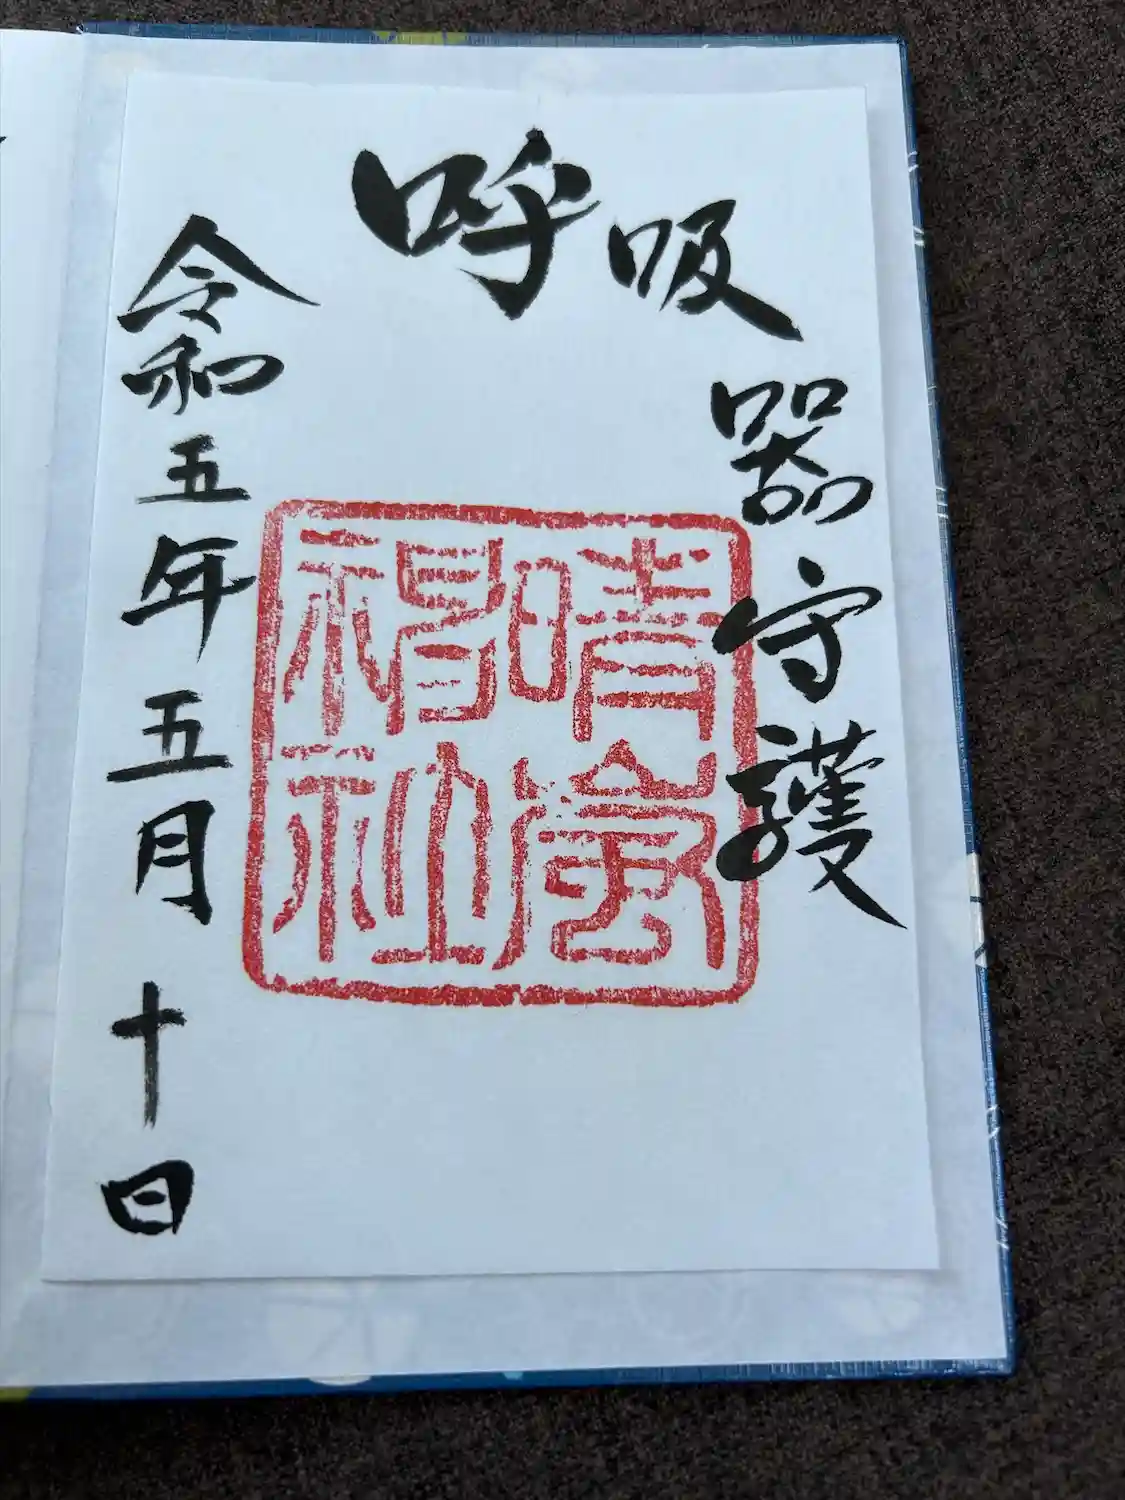 呼吸器守護
晴嵐
社
令和五年五月十日